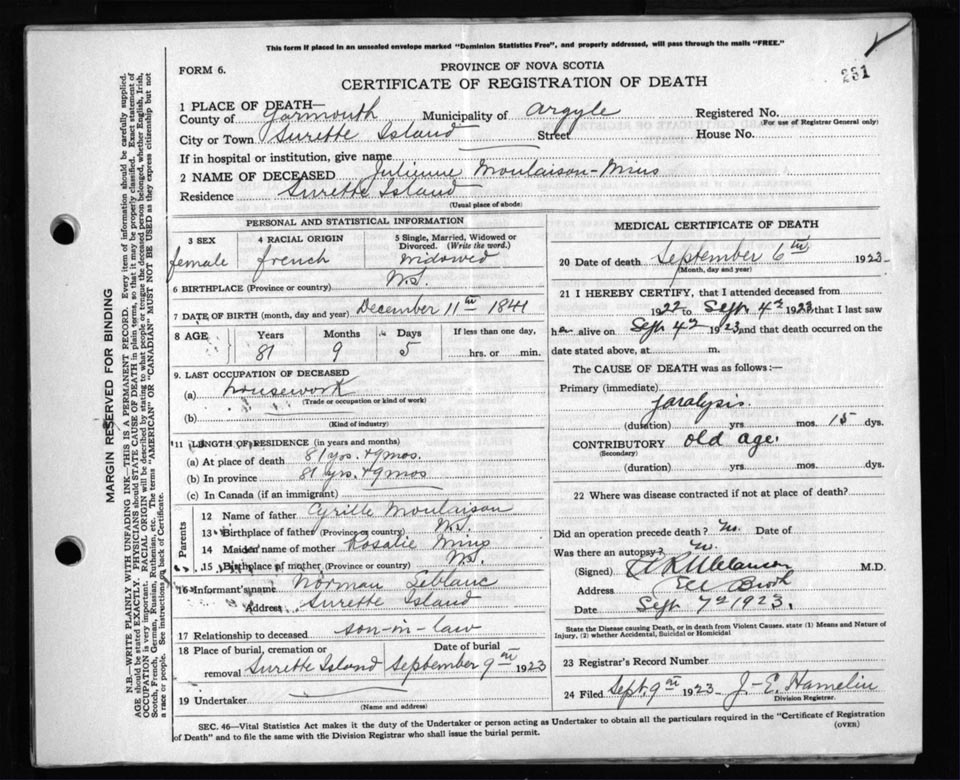 This form if placed in an unsealed envelope marked "Dominion Statistics Free", and properly addressed, will pass through the mails "FREE."
231
FORM 6.
PROVINCE OF NOVA SCOTIA
CERTIFICATE OF REGISTRATION OF DEATH
1 PLACE OF DEATH—
County of Yarmouth Municipality of Argyle Registered No.
(For use of Registrar General only)
City or Town Surette Island Street House No.
If in hospital or institution, give name
2 NAME OF DECEASED Julienne Moulaison-Mius
Residence Surette Island
(Usual place of abode)
PERSONAL AND STATISTICAL INFORMATION
3 SEX 4 RACIAL ORIGIN 5 Single, Married, Widowed or Divorced. (Write the word.)
female french widowed
6 BIRTHPLACE (Province or country) N.S.
7 DATE OF BIRTH (month, day and year) December 11th 1841
8 AGE Years Months Days If less than one day,
81 9 5 hrs. or min.
9. LAST OCCUPATION OF DECEASED
(a) housework
(Trade or occupation or kind of work)
(b)
(Kind of industry)
11 LENGTH OF RESIDENCE (in years and months)
(a) At place of death 81 yrs. + 9 mos.
(b) In province 81 yrs. + 9 mos
(c) In Canada (if an immigrant)
Parents
12 Name of father Cyrille Moulaison
13 Birthplace of father (Province or country) N.S.
14 Maiden name of mother Rosalie Mius
15 Birthplace of mother (Province or country) N.S.
16 Informant's name Norman Leblanc
Address Surette Island
17 Relationship to deceased son-in-law
18 Place of burial, cremation or removal Surette Island Date of burial September 9th 1923
19 Undertaker
(Name and address)
MEDICAL CERTIFICATE OF DEATH
20 Date of death September 6th 1923
(Month, day and year)
21 I HEREBY CERTIFY, that I attended deceased from
1922 to Sept. 4th 1923 that I last saw
h alive on Sept 4th 1923 and that death occurred on the
date stated above, at m.
The CAUSE OF DEATH was as follows:—
Primary (immediate)
paralysis
(duration) yrs. mos. 15 dys.
CONTRIBUTORY old age.
(Secondary)
(duration) yrs. mos. dys.
22 Where was disease contracted if not at place of death?
Did an operation precede death? No. Date of
Was there an autopsy? No.
(Signed) M.D.
Address Eel Brook
Date Sept 7th 1923.
State the Disease causing Death, or in death from Violent Causes, state (1) Means and Nature of
Injury, (2) whether Accidental, Suicidal or Homicidal
23 Registrar's Record Number
24 Filed Sept. 9th 1923 J. E. Hamelin
Division Registrar.
SEC. 46—Vital Statistics Act makes it the duty of the Undertaker or person acting as Undertaker to obtain all the particulars required in the "Certificate of Registration
of Death" and to file the same with the Division Registrar who shall issue the burial permit.
(OVER)
MARGIN RESERVED FOR BINDING
N.B.—WRITE PLAINLY WITH UNFADING INK—THIS IS A PERMANENT RECORD. Every item of information should be carefully supplied.
AGE should be stated EXACTLY. PHYSICIANS should STATE CAUSE OF DEATH in plain terms, so that it may be properly classified. Exact statement of
OCCUPATION is very important. RACIAL ORIGIN will be described by stating to what people or tongue the deceased person belonged, whether English, Irish,
Scotch, French, German, Russian, Ruthenian, etc. The terms "AMERICAN" OR "CANADIAN" MUST NOT BE USED as they express citizenship but not
a race or people. See instructions on back of Certificate.